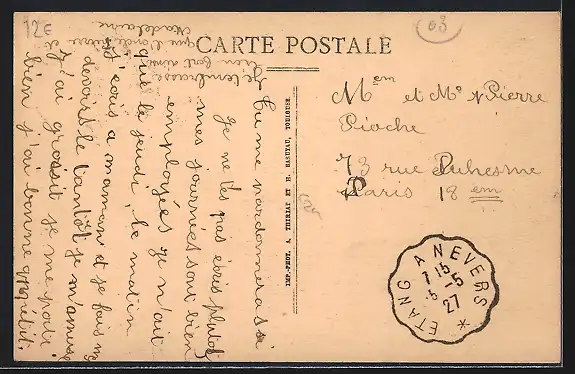 12€
03
CARTE POSTALE
Tu me pardonneras si
je ne t'es pas écris plutot
mes journées sont bien
employées je n'ait
que le jeudi, le matin
j'écris a maman et je fais mes
devoirs le tantôt je m'amuse
j'ai grossit je me porte
bien j'ai bonne appétit.
Je t'embrasse
bien fort ainsi
que Madelaine
IMP.-PHOT. A. THIRIAT ET H. BASUYAU, TOULOUSE
M et Me Pierre
Pioche
73 rue Duhesme
Paris 18 em
ETANG A NEVERS *
7 15
5 - 5
27